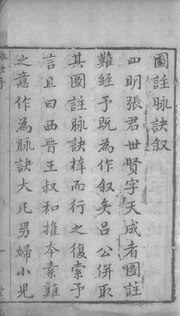 圖註脉訣叙
四明張君世賢字天成者圖註
難經予既為作叙矣吕公併取
其圖註脉訣梓而行之復索予
言且曰西晋王叔和推本素難
之意作為脉訣大凡男婦小兒